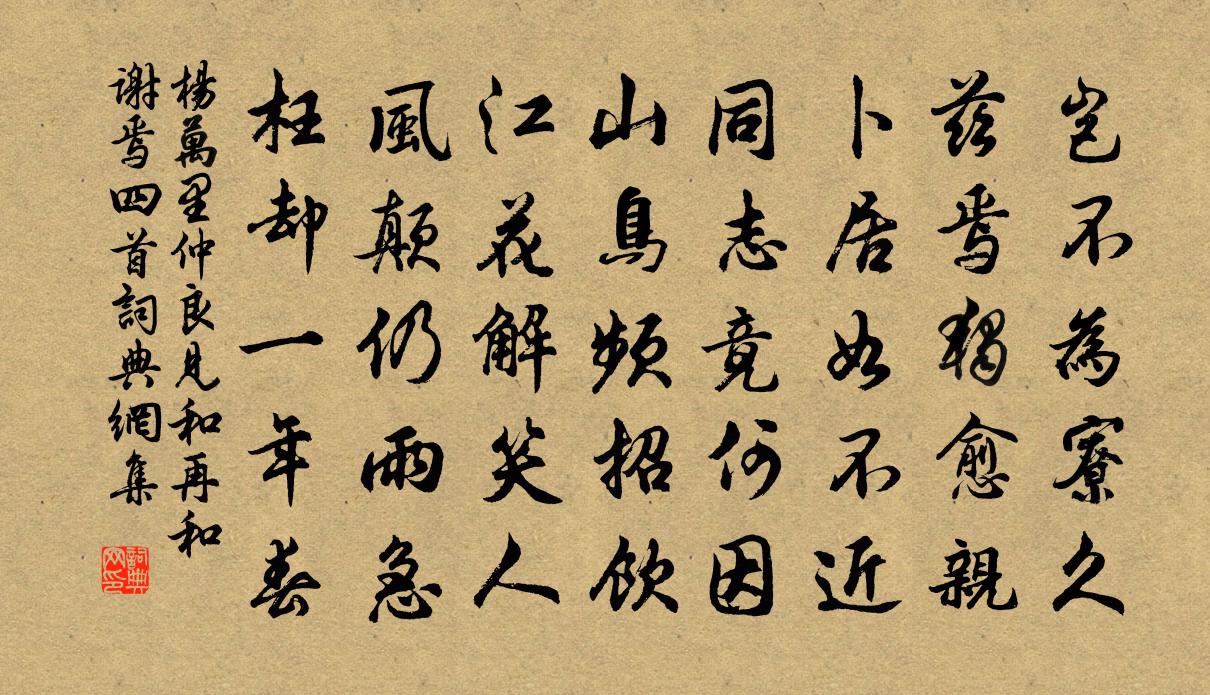 豈不為寮久
茲焉獨愈親
卜居如不近
同志竟何因
山鳥頻招飲
江花解笑人
風顛仍雨急
枉却一年春
楊萬里仲良見和再和
謝焉四首詞典網集
詞典
网印